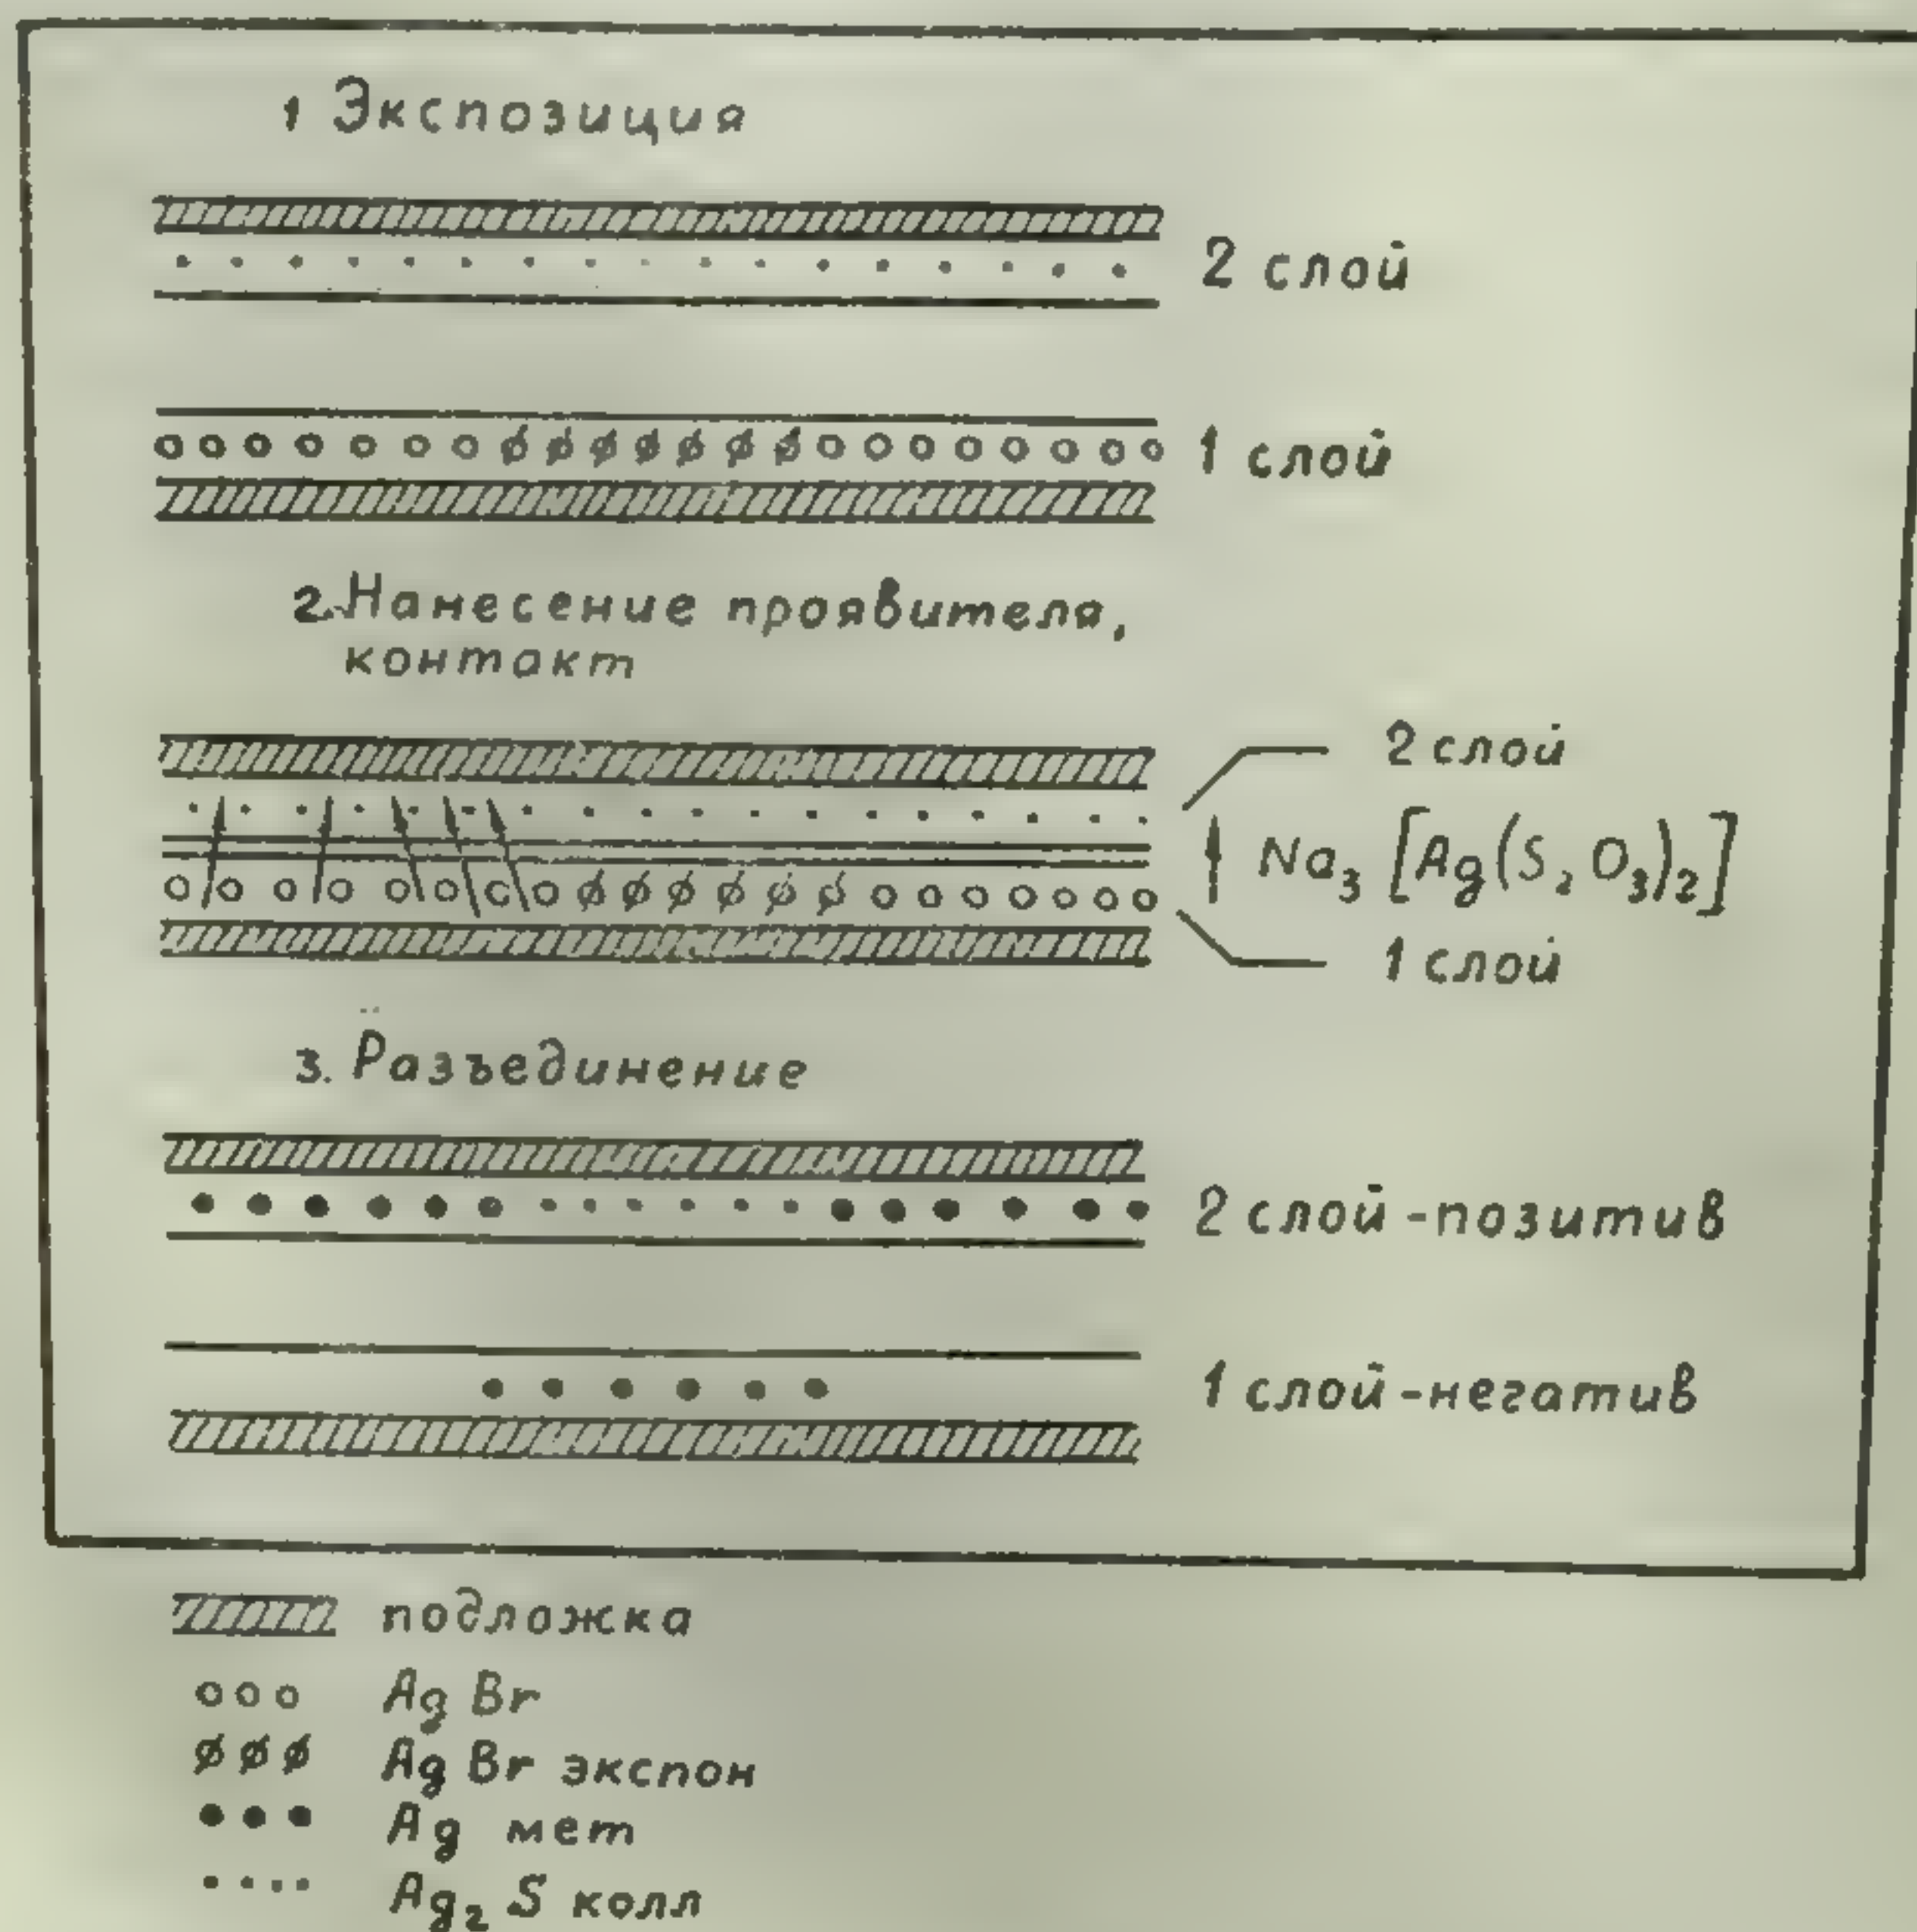 1 Экспозиция
2 слой
1 слой
2. Нанесение проявителя,
контакт
2 слой
Na₃ [Ag(S₂O₃)₂]
1 слой
3. Разъединение
2 слой - позитив
1 слой - негатив
подложка
Ag Br
Ag Br экспон
Ag мет
Ag₂ S колл